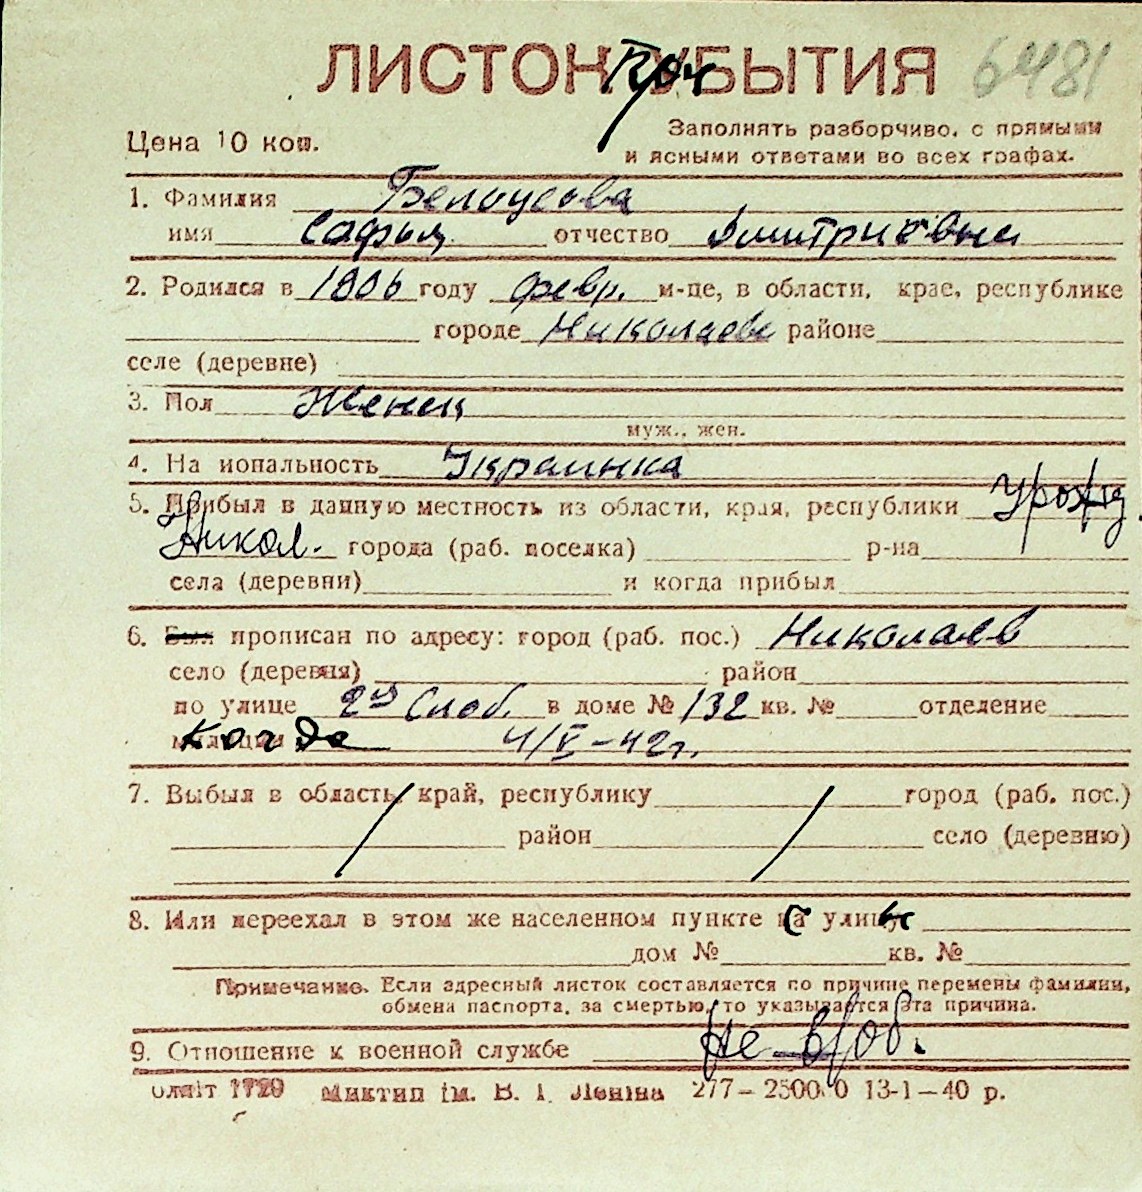 ЛИСТОК УБЫТИЯ 6481
Цена 10 коп.
Заполнять разборчиво, с прямыми
и ясными ответами во всех графах.
1. Фамилия Белоусова
имя Сафья отчество Дмитриевна
2. Родился в 1906 году февр. м-це, в области, крае, республике
городе Николаеве районе
селе (деревне)
3. Пол Женск
муж., жен.
4. На иональность Украинка
5. Прибыл в данную местность из области, края, республики Урожд.
Никол. города (раб. поселка) р-на
села (деревни) и когда прибыл
6. Был прописан по адресу: город (раб. пос.) Николаев
село (деревня) район
по улице 2ая Слоб. в доме № 132 кв. № отделение
милиции Когда 4/V-42 г.
7. Выбыл в область, край, республику город (раб. пос.)
район село (деревню)
8. Или переехал в этом же населенном пункте на улицу
дом № кв. №
Примечание. Если адресный листок составляется по причине перемены фамилии,
обмена паспорта, за смертью, то указывается эта причина.
9. Отношение к военной службе Не в/об.
Миктип ім. В. І. Леніна 277—25000 13-1—40 р.